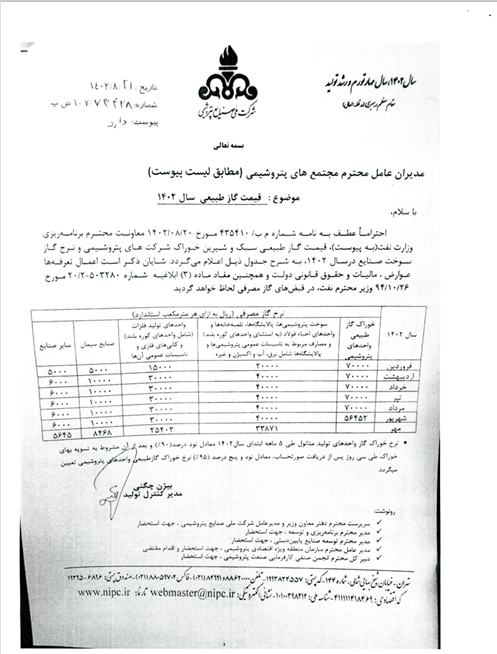 سال ۱۴۰۲، سال مهار تورم و رشد تولید
مقام معظم رهبری (مدظله العالی)
شرکت ملی صنایع پتروشیمی
تاریخ: ۱۴۰۲/۸/۲۱
شماره:
پیوست: دارد
بسمه تعالی
مدیران عامل محترم مجتمع های پتروشیمی (مطابق لیست پیوست)
موضوع : قیمت گاز طبیعی سال ۱۴۰۲
با سلام،
احتراماً عطف به نامه شماره م ب/۴۳۵۴۱۰ مورخ ۱۴۰۲/۰۸/۲۰ معاونت محترم برنامه‌ریزی
وزارت نفت(به پیوست)، قیمت گاز طبیعی سبک و شیرین خوراک شرکت های پتروشیمی و نرخ گاز
سوخت صنایع درسال ۱۴۰۲، به شرح جدول ذیل اعلام می‌گردد. شایان ذکر است اعمال تعرفه‌ها
عوارض ، مالیات و حقوق قانونی دولت و همچنین مفاد ماده (۳) ابلاغیه شماره ۵۰۳۲۸۰-۲۰/۲ مورخ
۹۴/۱۰/۲۶ وزیر محترم نفت، در قبض‌های گاز مصرفی لحاظ خواهد گردید.
سال ۱۴۰۲
نرخ گاز مصرفی (ریال به ازای هر مترمکعب استاندارد)
خوراک گاز طبیعی واحدهای پتروشیمی
سوخت پتروشیمی‌ها، پالایشگاه‌ها، تلمبه‌خانه‌ها و واحدهای احیاء فولاد (به استثنای واحدهای کوره بلند) و مصارف مربوط به تاسیسات عمومی پتروشیمی‌ها و پالایشگاه‌ها شامل برق، آب و اکسیژن و غیره
واحدهای تولید فلزات (شامل واحدهای کوره بلند) و کانی‌های فلزی و تاسیسات عمومی آن‌ها
صنایع سیمان
سایر صنایع
فروردین ۷۰۰۰۰ ۲۰۰۰۰ ۱۵۰۰۰ ۵۰۰۰ ۵۰۰۰
اردیبهشت ۷۰۰۰۰ ۴۰۰۰۰ ۳۰۰۰۰ ۱۰۰۰۰ ۶۰۰۰
خرداد ۷۰۰۰۰ ۴۰۰۰۰ ۳۰۰۰۰ ۱۰۰۰۰ ۶۰۰۰
تیر ۷۰۰۰۰ ۴۰۰۰۰ ۳۰۰۰۰ ۱۰۰۰۰ ۶۰۰۰
مرداد ۷۰۰۰۰ ۴۰۰۰۰ ۳۰۰۰۰ ۱۰۰۰۰ ۶۰۰۰
شهریور ۵۶۴۵۲ ۴۰۰۰۰ ۳۰۰۰۰ ۱۰۰۰۰ ۶۰۰۰
مهر ۳۳۸۷۱ ۲۵۴۰۳ ۸۴۶۸ ۵۶۴۵
• نرخ خوراک گاز واحدهای تولید متانول طی ۵ ماهه ابتدای سال۱۴۰۲ معادل نود درصد(۹۰٪) و بعد از آن مشروط به تسویه بهای
خوراک طی سی روز پس از دریافت صورتحساب، معادل نود و پنج درصد (۹۵٪) نرخ خوراک گازطبیعی واحدهای پتروشیمی تعیین
میگردد
بیژن چگنی
مدیر کنترل تولید
رونوشت:
✓ سرپرست محترم دفتر معاون وزیر و مدیرعامل شرکت ملی صنایع پتروشیمی ، جهت استحضار
✓ مدیر محترم برنامه‌ریزی و توسعه ، جهت استحضار
✓ مدیر محترم توسعه صنایع پایین‌دستی ، جهت استحضار
✓ مدیر عامل محترم سازمان منطقه ویژه اقتصادی پتروشیمی ، جهت استحضار و اقدام مقتضی
✓ دبیر کل محترم انجمن صنفی کارفرمایی صنعت پتروشیمی ، جهت استحضار
تهران - خیابان شیخ بهایی شمالی، شماره ۱۴۴- کد پستی: ۱۹۹۴۳۳۴۵۵۷- تلفن: - فاکس: ۸۸۰۵۹۷۰۲(۰۲۱)- صندوق پستی: ۶۸۹۶-۱۹۳۹۵
کد اقتصادی: ۴۱۱۱۱۴۱۸۴۶۹- شناسه ملی: ۱۰۱۰۰۳۹۸۲۱۲- نشانی الکترونیکی: webmaster@nipc.ir تارنما: www.nipc.ir